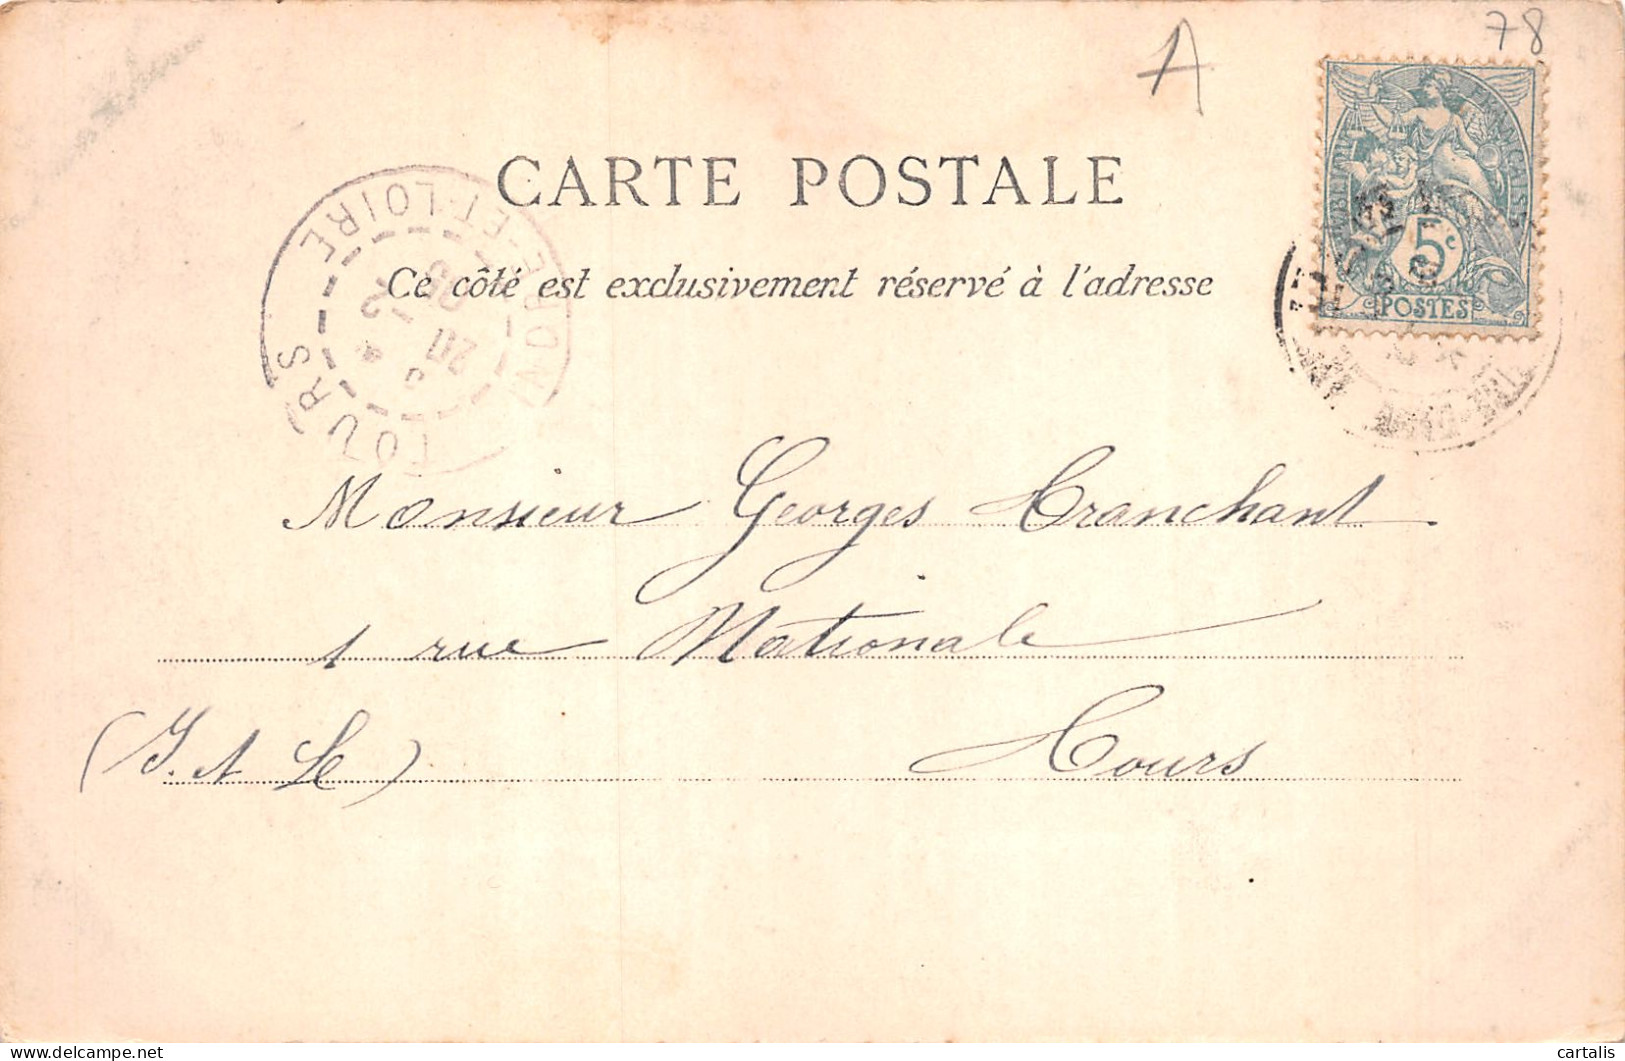 78
A
RÉPUBLIQUE FRANÇAISE
5c
POSTES
CARTE POSTALE
Ce côté est exclusivement réservé à l'adresse
TOURS INDRE-ET-LOIRE
Monsieur Georges Tranchant
1 rue Nationale
Tours
(I. et L)
cartalis
delcampe.net